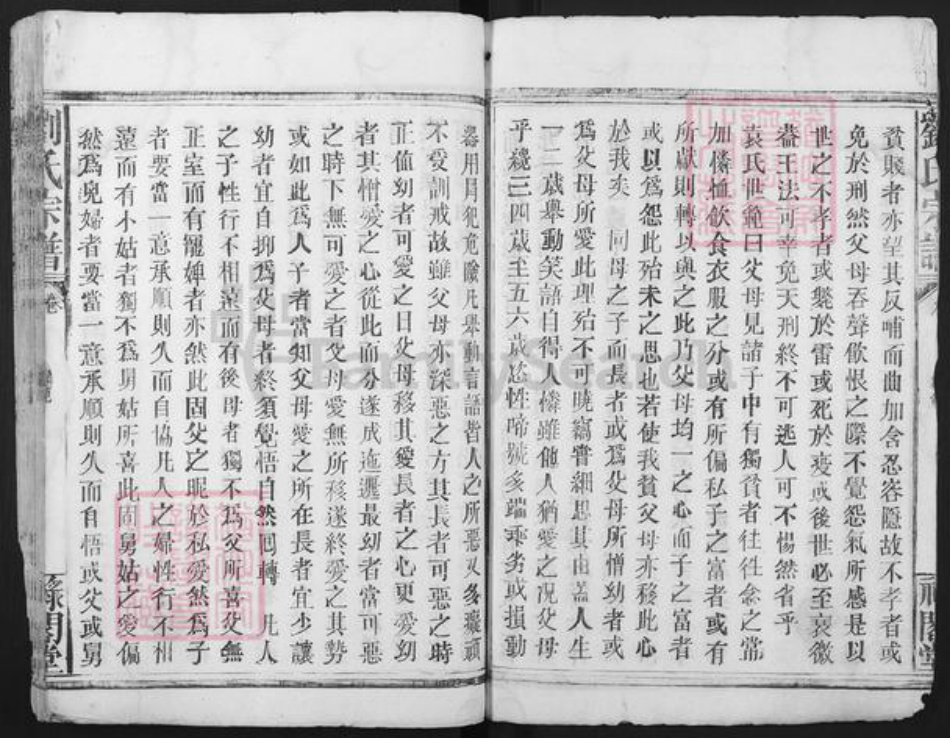 劉氏宗譜
祿閣堂
貧賤者亦望其反哺而曲加含忍容隱故不孝者或
免於刑然父母吞聲飲恨之際不覺怨氣所感是以
世之不孝者或斃於雷或死於疫或後世必至衰微
蓋王法可幸免天刑終不可逃人可不惕然省乎
袁氏世範曰父母見諸子中有獨貧者往往念之常
加憐恤飲食衣服之分或有所偏私子之富者或有
所獻則轉以與之此乃父母均一之心而子之富者
或以爲怨此殆未之思也若使我貧父母亦移此心
於我矣 同母之子而長者或爲父母所憎幼者或
爲父母所愛此理殆不可曉竊嘗細思其由蓋人生
一二歲舉動笑語自得人憐雖他人猶愛之况父母
乎纔三四歲至五六歲恣性啼號多端乖劣或損動
器用冒犯危險凡舉動言語皆人之所惡又多癡頑
不受訓戒故雖父母亦深惡之方其長者可惡之時
正值幼者可愛之日父母移其愛長者之心更愛幼
者其憎愛之心從此而分遂成迤邐最幼者當可惡
之時下無可愛之者父母愛無所移遂終愛之其勢
或如此爲人子者當知父母愛之所在長者宜少讓
幼者宜自抑爲父母者終須覺悟自然回轉 凡人
之子性行不相遠而有後母者獨不爲父所喜父無
正室而有寵婢者亦然此固父之昵於私愛然爲子
者要當一意承順則久而自協凡人之婦性行不相
遠而有小姑者獨不爲舅姑所喜此固舅姑之愛偏
然爲兒婦者要當一意承順則久而自悟或父或舅
劉氏宗譜
卷
祿閣堂
FamilySearch